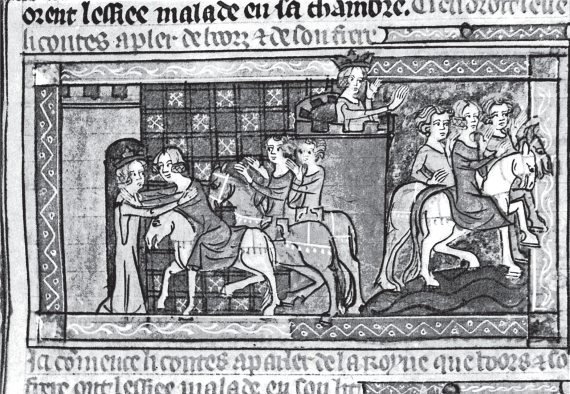 orent lessiee malade en sa chambre.
li contes a pler de boorz ⁊ de son frere
Ici cõmence li contes a parler de la Royne que boors ⁊ so
frere ont lessiee malade en son lit